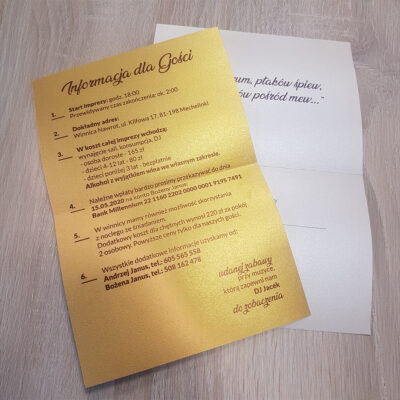 Informacja dla Gości
1. Start imprezy: godz. 18:00
Przewidywany czas zakończenia: ok. 2:00
2. Dokładny adres:
Winnica Nawrot, ul. Kilfowa 17, 81-198 Mechelinki
3. W koszt całej imprezy wchodzą:
wynajęcie sali, konsumpcja, DJ
- osoba dorosła - 165 zł
- dzieci 4-12 lat - 80 zł
- dzieci poniżej 3 lat - bezpłatnie
Alkohol z wyjątkiem wina we własnym zakresie.
4. Należne wpłaty bardzo prosimy przekazywać do dnia
15.05.2020 na konto Bożeny Janus:
Bank Millennium 22 1160 2202 0000 0001 9195 7491
5. W winnicy mamy również możliwość skorzystania
z noclegu ze śniadaniem.
Dodatkowy koszt dla chętnych wynosi 220 zł za pokój
2 osobowy. Powyższe ceny tylko dla naszych gości.
6. Wszystkie dodatkowe informacje uzyskamy od:
Andrzej Janus, tel.: 605 565 558
Bożena Janus, tel.: 508 162 478
udanej zabawy
przy muzyce,
którą zapewni nam
DJ Jacek
do zobaczenia
rum, ptaków śpiew,
ów pośród mew..."